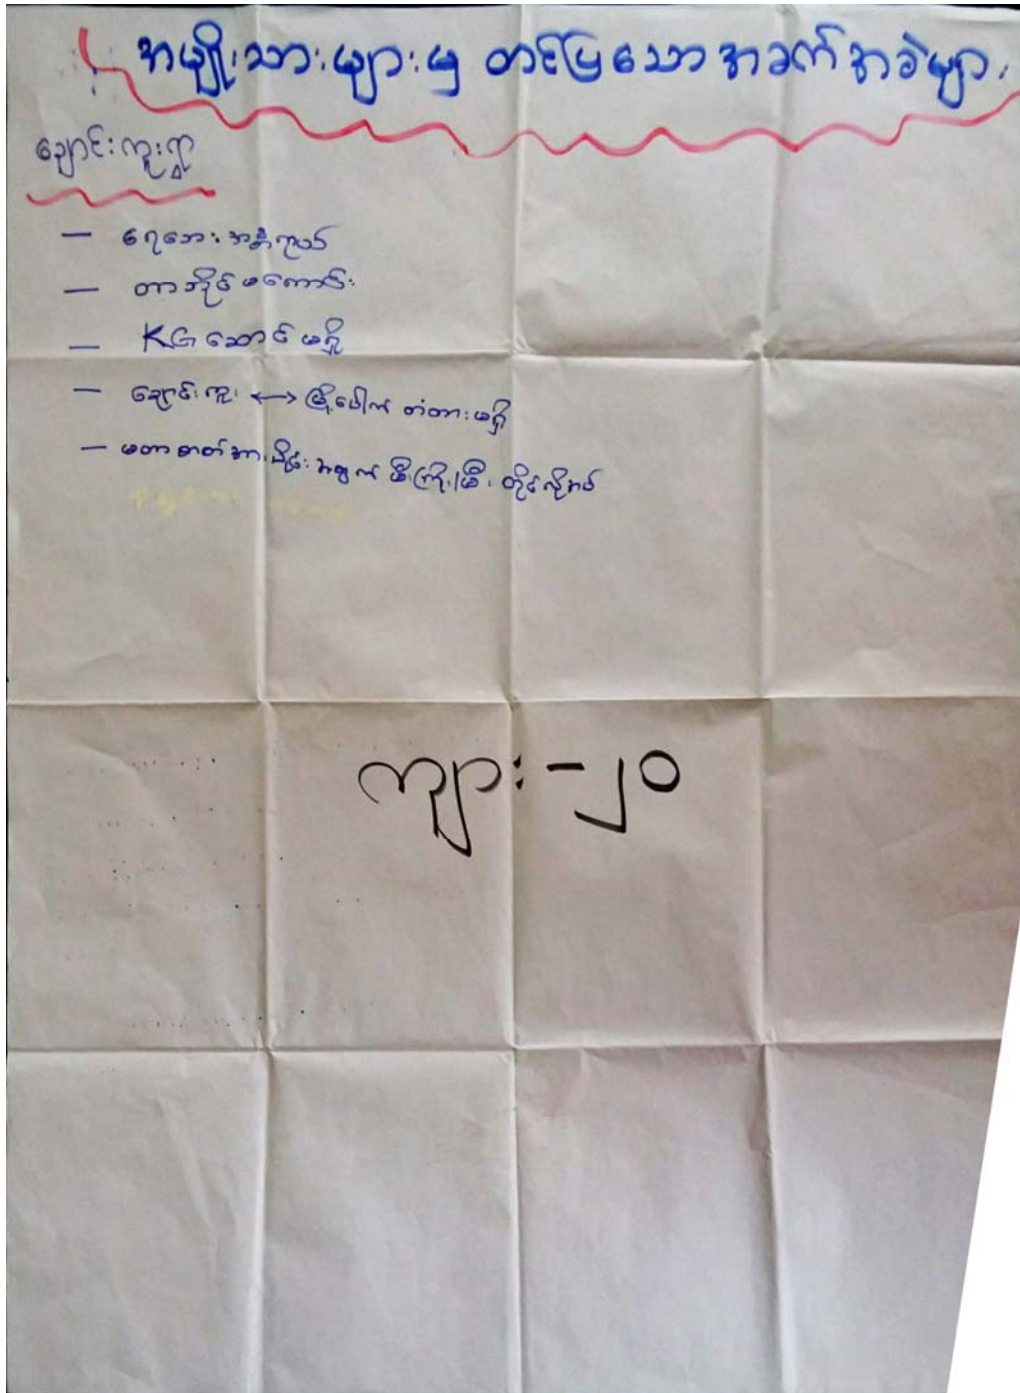 အမျိုးသားများမှ တင်ပြသောအခက်အခဲများ
ချောင်းကူးရွာ
– ရေဘေးအန္တရာယ်
– တာဘိုင်မကောင်း
– KG ဆောင်မရှိ
– ချောင်းကူး ⟷ မြို့ပေါ်က တံတားမရှိ
– မတာဓာတ်အားခိုင်းအတွက် မီးကြိုး/မီးတိုင်လိုအပ်
ကျား - ၂၀